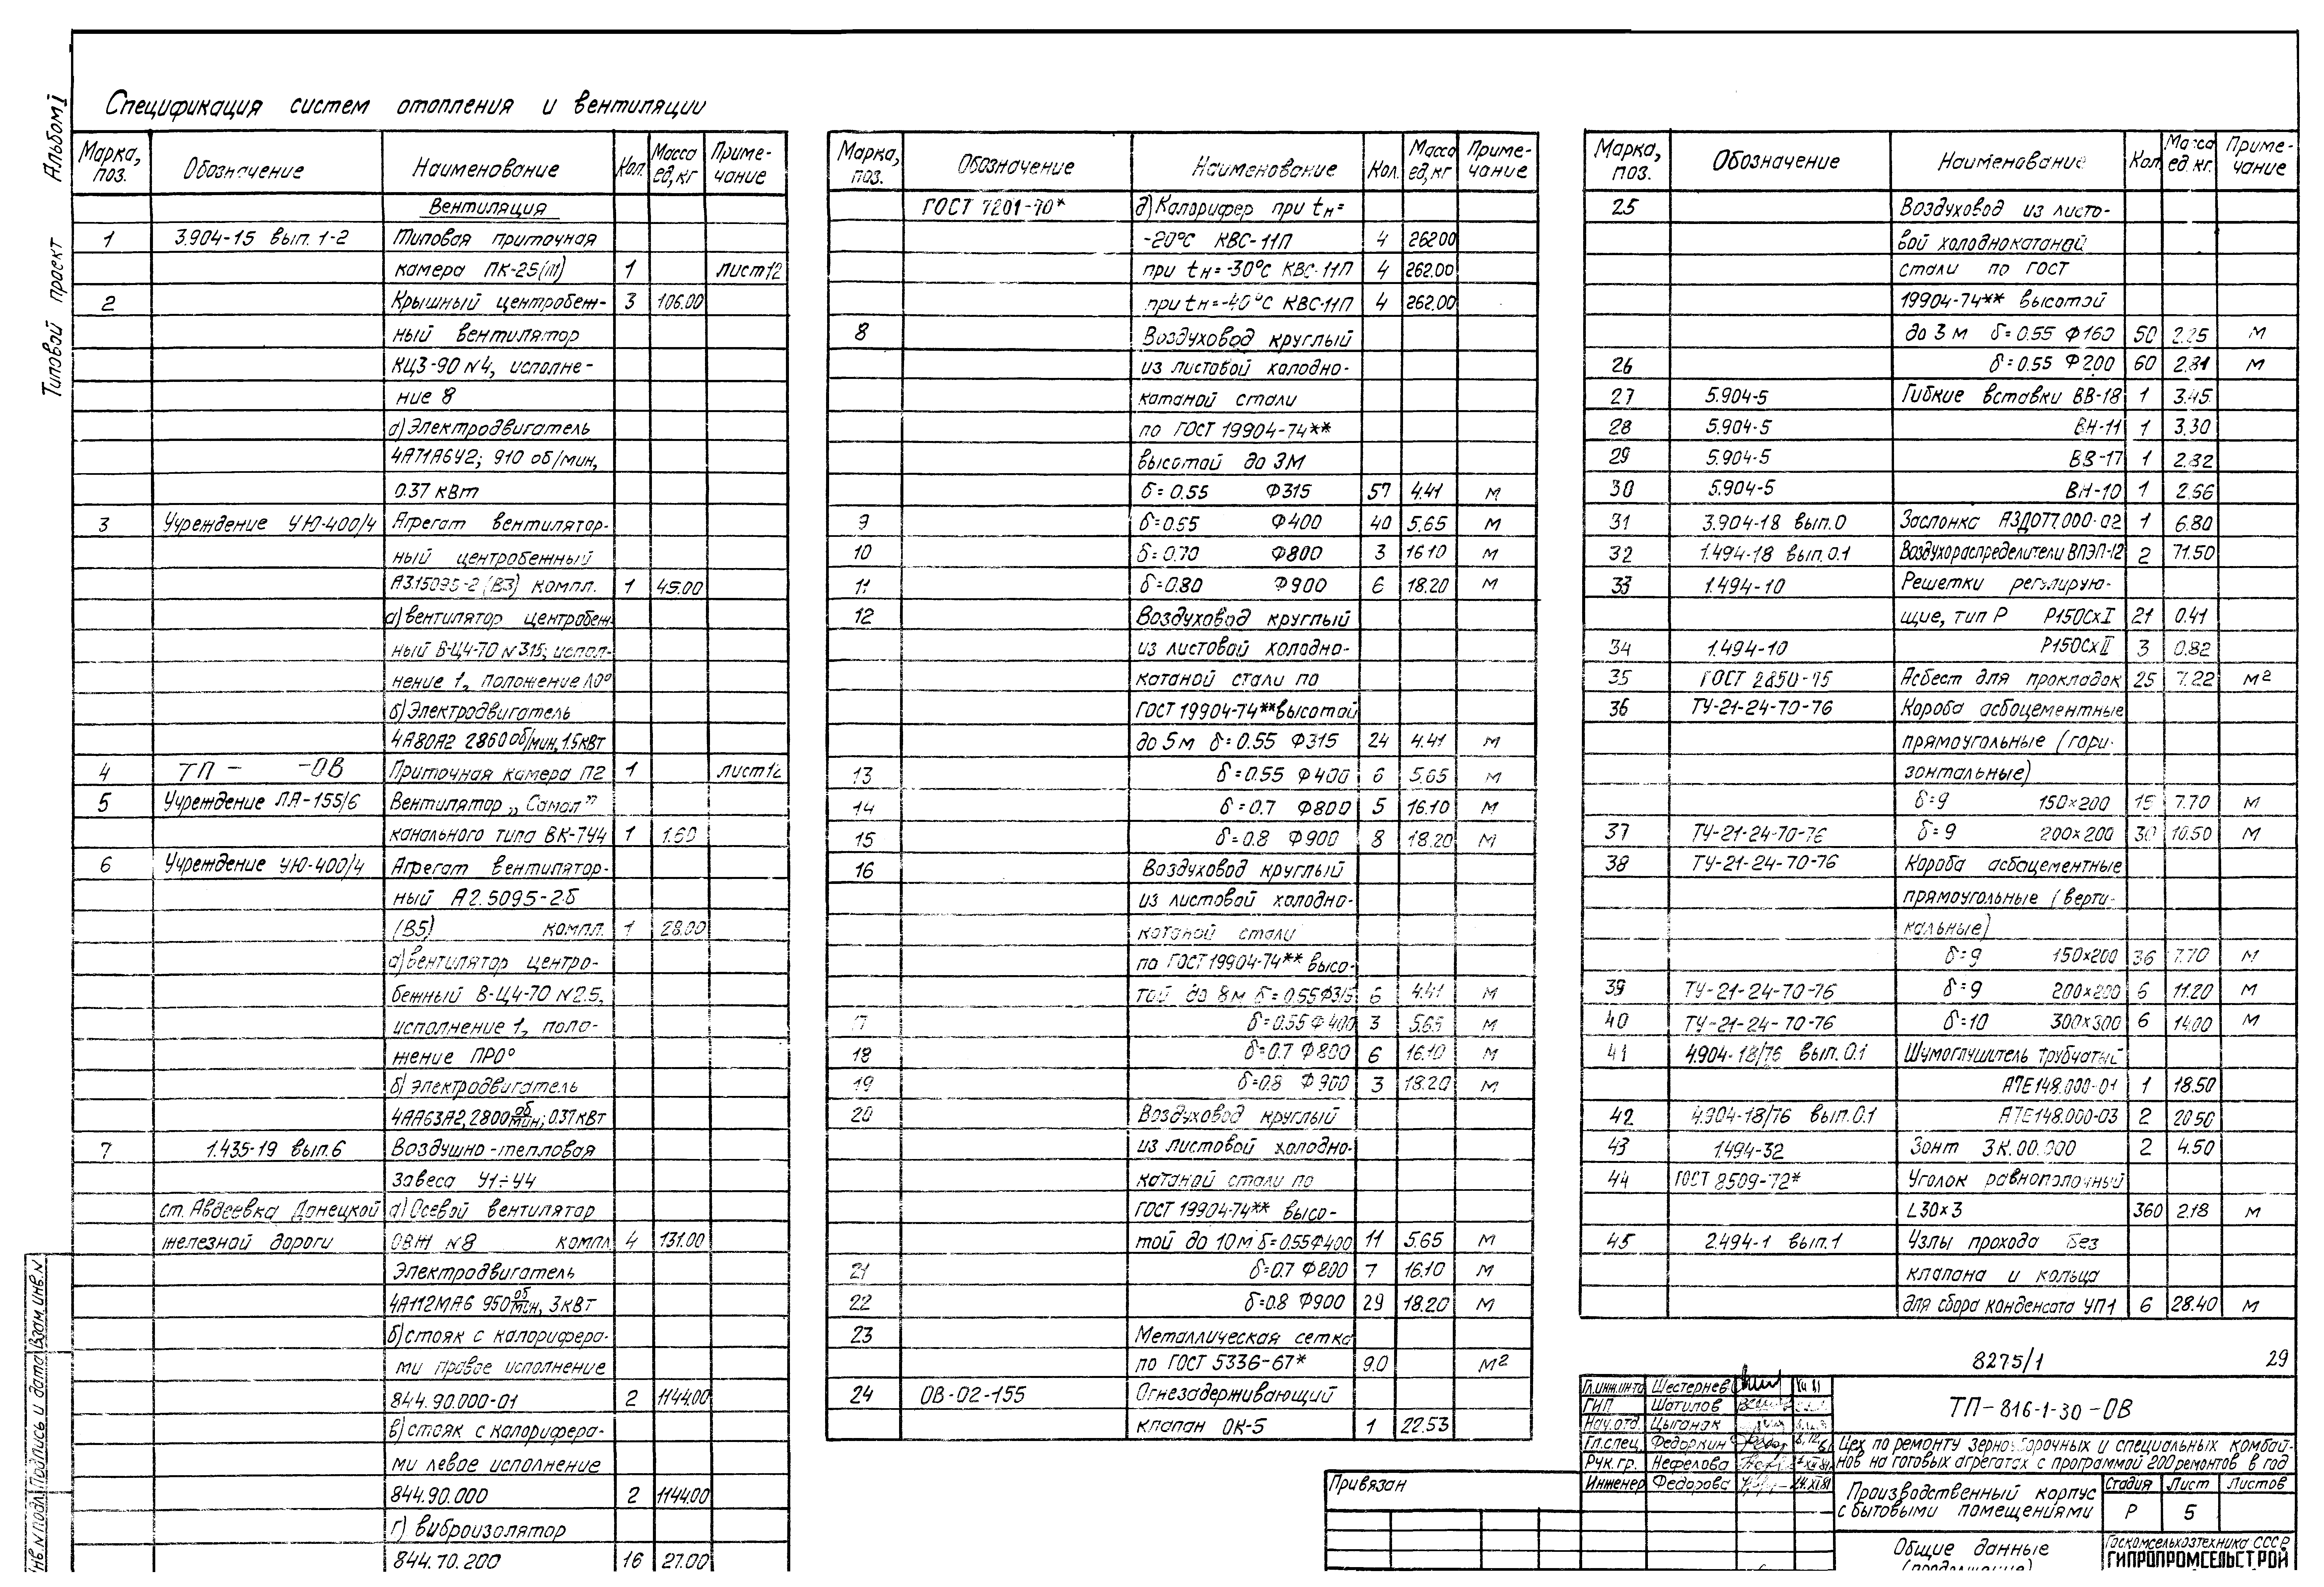 Альбом I
Типовой проект
Спецификация систем отопления и вентиляции
Марка, поз. Обозначение Наименование Кол. Масса ед, кг Приме-чание
Вентиляция
1 3.904-15 вып. 1-2 Типовая приточная
камера ПК-25(III) 1 лист 12
2 Крышный центробеж- 3 106.00
ный вентилятор
КЦ3-90 N4, исполне-
ние 8
а) Электродвигатель
4А71А6У2; 910 об/мин,
0.37 кВт
3 Учреждение УЮ-400/4 Агрегат вентилятор-
ный центробежный
А3.15095-2 (В3) компл. 1 45.00
а) вентилятор центробеж-
ный В-Ц4-70 N3.15; испол-
нение 1, положение Л0°
б) Электродвигатель
4А80А2 2860 об/мин, 1.5 кВт
4 ТП - -ОВ Приточная камера П2 1 лист 12
5 Учреждение ЛА-155/6 Вентилятор „Самал”
канального типа ВК-7У4 1 1.60
6 Учреждение УЮ-400/4 Агрегат вентилятор-
ный А2.5095-2.б
(В5) компл. 1 28.00
а) вентилятор центро-
бежный В-Ц4-70 N2.5,
исполнение 1, поло-
жение ПР0°
б) электродвигатель
4АА63А2, 2800 об/мин; 0.37 кВт
7 1.435-19 вып. 6 Воздушно-тепловая
завеса У1÷У4
ст. Авдеевка Донецкой а) Осевой вентилятор
железной дороги ОВЖ N8 компл 4 131.00
Электродвигатель
4А112МА6 950 об/мин, 3 кВт
б) стояк с калорифера-
ми правое исполнение
844.90.000-01 2 1144.00
в) стояк с калорифера-
ми левое исполнение
844.90.000 2 1144.00
г) виброизолятор
844.70.200 16 27.00
Марка, поз. Обозначение Наименование Кол. Масса ед, кг Приме-чание
ГОСТ 7201-70* д) Калорифер при tн=
-20°С КВС-11П 4 262.00
при tн=-30°С КВС-11П 4 262.00
при tн=-40°С КВС-11П 4 262.00
8 Воздуховод круглый
из листовой холодно-
катаной стали
по ГОСТ 19904-74**
высотой до 3М
δ=0.55 Ф315 57 4.41 м
9 δ=0.55 Ф400 40 5.65 м
10 δ=0.70 Ф800 3 16.10 м
11 δ=0.80 Ф900 6 18.20 м
12 Воздуховод круглый
из листовой холодно-
катаной стали по
ГОСТ 19904-74** высотой
до 5м δ=0.55 Ф315 24 4.41 м
13 δ=0.55 Ф400 6 5.65 м
14 δ=0.7 Ф800 5 16.10 м
15 δ=0.8 Ф900 8 18.20 м
16 Воздуховод круглый
из листовой холодно-
катаной стали
по ГОСТ 19904-74** высо-
той до 8м δ=0.55 Ф315 6 4.41 м
17 δ=0.55 Ф400 3 5.65 м
18 δ=0.7 Ф800 6 16.10 м
19 δ=0.8 Ф900 3 18.20 м
20 Воздуховод круглый
из листовой холодно-
катаной стали по
ГОСТ 19904-74** высо-
той до 10м δ=0.55 Ф400 11 5.65 м
21 δ=0.7 Ф800 7 16.10 м
22 δ=0.8 Ф900 29 18.20 м
23 Металлическая сетка
по ГОСТ 5336-67* 9.0 м²
24 ОВ-02-155 Огнезадерживающий
клапан ОК-5 1 22.53
Марка, поз. Обозначение Наименование Кол Масса ед. кг. Приме-чание
25 Воздуховод из листо-
вой холоднокатаной
стали по ГОСТ
19904-74** высотой
до 3 м δ=0.55 Ф160 50 2.25 м
26 δ=0.55 Ф200 60 2.81 м
27 5.904-5 Гибкие вставки ВВ-18 1 3.45
28 5.904-5 ВН-11 1 3.30
29 5.904-5 ВВ-17 1 2.82
30 5.904-5 ВН-10 1 2.56
31 3.904-18 вып. 0 Заслонка АЗД077.000-02 1 6.80
32 1.494-18 вып. 0.1 Воздухораспределители ВПЭП-12 2 71.50
33 1.494-10 Решетки регулирую-
щие, тип Р Р150СхI 21 0.41
34 1.494-10 Р150СхII 3 0.82
35 ГОСТ 2850-75 Асбест для прокладок 25 7.22 м²
36 ТУ-21-24-70-76 Короба асбоцементные
прямоугольные (гори-
зонтальные)
δ=9 150×200 15 7.70 м
37 ТУ-21-24-70-76 δ=9 200×200 30 10.50 м
38 ТУ-21-24-70-76 Короба асбацементные
прямоугольные (верти-
кальные)
δ=9 150×200 36 7.70 м
39 ТУ-21-24-70-76 δ=9 200×200 6 11.20 м
40 ТУ-21-24-70-76 δ=10 300×300 6 14.00 м
41 4.904-18/76 вып. 0.1 Шумоглушитель трубчатый
А7Е148.000-01 1 18.50
42 4.904-18/76 вып. 0.1 А7Е148.000-03 2 20.50
43 1.494-32 Зонт ЗК.00.000 2 4.50
44 ГОСТ 8509-72* Уголок равнополочный
L30×3 360 2.18 м
45 2.494-1 вып. 1 Узлы прохода без
клапана и кольца
для сбора конденсата УП1 6 28.40 м
8275/1 29
Гл.инж.инта Шестернев
ГИП Шатилов
Нач.отд. Цыганок
Гл.спец. Федоркин
Рук. гр. Нефелова
Инженер Федорова
ТП-816-1-30-ОВ
Цех по ремонту зерноуборочных и специальных комбай-
нов на готовых агрегатах с программой 200 ремонтов в год
Производственный корпус
с бытовыми помещениями
Стадия Лист Листов
Р 5
Общие данные
(продолжение)
Госкомсельхозтехника СССР
ГИПРОПРОМСЕЛЬСТРОЙ
Привязан
Инв. N подл. Подпись и дата Взам. инв. N